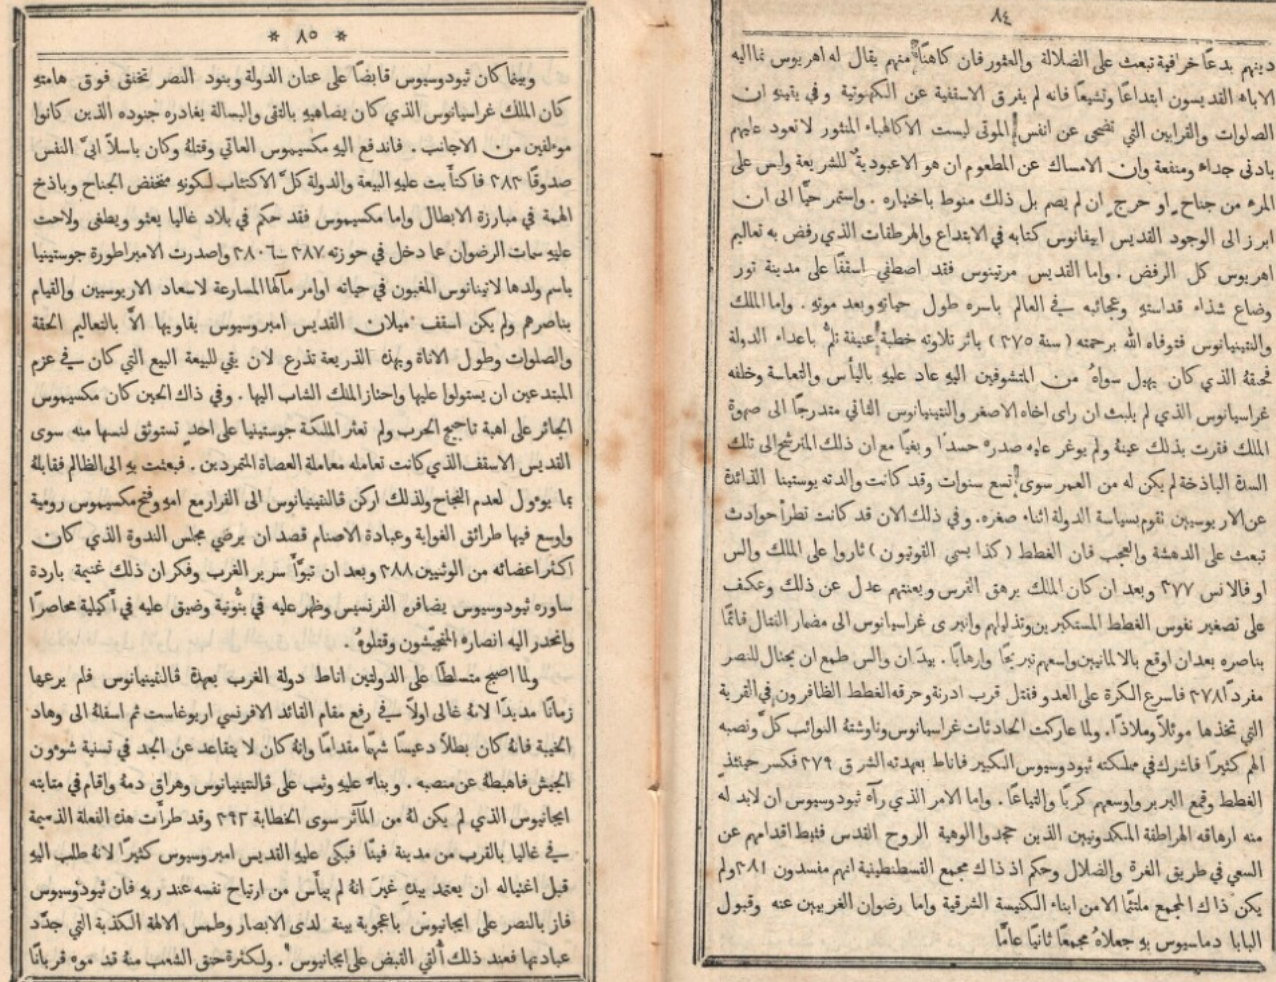 ٨٤
دينهم بدعًا خرافية تبعث على الضلالة والعثور فان كاهنًا منهم يقال له اهريوس نما اليه
الاباء القديسون ابتداعًا وتشيعًا فانه لم يفرق الاسقفية عن الكهنوتية وفي يقينه ان
الصلوات والقرابين التي تضحى عن انفس الموتى ليست الا كالهباء المنثور لا تعود عليهم
بادنى جداء ومنفعة وان الامساك عن المطعوم ان هو الا عبودية للشريعة وليس على
المرء من جناح او حرج ان لم يصم بل ذلك منوط باختياره . واستمر حيًّا الى ان
ابرز الى الوجود القديس ابيفانوس كتابه في الابتداع والهرطقات الذي رفض به تعاليم
اهريوس كل الرفض . واما القديس مرتينوس فقد اصطفي اسقفًا على مدينة تور
وضاع شذاء قداسته وعجائبه في العالم باسره طول حياته وبعد موته . واما الملك
والنتينيانوس فتوفاه الله برحمته (سنة ٣٧٥) باثر تلاوته خطبة عنيفة تلمُّ باعداء الدولة
فحنقهُ الذي كان يهيل سواهُ من المتشوفين اليه عاد عليه باليأس والتعاسة وخلفه
غراسيانوس الذي لم يلبث ان راى اخاه الاصغر والنتينيانوس الثاني متدرجًا الى صهوة
الملك فقرت بذلك عينهُ ولم يوغر عليه صدره حسدًا وبغيًا مع ان ذلك المترشح الى تلك
السدة الباذخة لم يكن له من العمر سوى تسع سنوات وقد كانت والدته يوستينا الذائدة
عن الاريوسيين تقوم بسياسة الدولة اثناء صغره . وفي ذلك الان قد كانت تطرأ حوادث
تبعث على الدهشة والعجب فان الغطط (كذا يسمي القوتيون) ثاروا على الملك والس
او فالانس ٣٧٧ وبعد ان كان الملك يرهق الفرس ويعنتهم عدل عن ذلك وعكف
على تصغير نفوس الغطط المستكبرين وتذليلهم وانبرى غراسيانوس الى مضمار القتال قائمًا
بناصره بعد ان اوقع بالالمانيين واسعهم تبريحًا وارهابًا . بيدَ ان والس طمع ان يحتال للنصر
مفردًا ٣٧٨ فاسرع الكرة على العدو فقتل قرب ادرنة وحرقه الغطط الظافرون في القرية
التي تخذها موئلًا وملاذًا . ولما عاركت الحادثات غراسيانوس وناوشتهُ النوائب كلَّ ونصبه
الهم كثيرًا فاشرك في مملكته ثيودوسيوس الكبير فاناط بعهدته الشرق ٣٧٩ فكسر حينئذٍ
الغطط وقمع البربر واوسعهم كربًا والتياعًا . واما الامر الذي رآه ثيودوسيوس ان لابد له
منه ارهاقه الهراطقة المكدونيين الذين جحدوا الوهية الروح القدس فثبط اقدامهم عن
السعي في طريق الغرة والضلال وحكم اذ ذاك مجمع القسطنطينية انهم مفسدون ٣٨١ ولم
يكن ذاك المجمع ملتئمًا الا من ابناء الكنيسة الشرقية واما رضوان الغربيين عنه وقبول
البابا دماسيوس به جعلاهُ مجمعًا ثانيًا عامًّا
* ٨٥ *
وبينما كان ثيودوسيوس قابضًا على عنان الدولة وبنود النصر تخفق فوق هامته
كان الملك غراسيانوس الذي كان يضاهيه بالتقى والبسالة يغادره جنوده الذين كانوا
موءلفين من الاجانب . فاندفع اليه مكسيموس العاتي وقتلهُ وكان باسلًا ابيَّ النفس
صدوقًا ٣٨٣ فاكتأبت عليه البيعة والدولة كلَّ الاكتئاب لكونه منخفض الجناح وباذخ
الهمة في مبارزة الابطال واما مكسيموس فقد حكم في بلاد غاليا يعثو ويطغى ولاحت
عليه سمات الرضوان عما دخل في حوزته ٣٨٧ـ٣٨٠٦ واصدرت الامبراطورة جوستينيا
باسم ولدها لانينانوس المغبون في حياته اوامر مآلها المسارعة لاسعاد الاريوسيين والقيام
بناصرهم ولم يكن اسقف ميلان القديس امبروسيوس يقاويها الاَّ بالتعاليم الحقة
والصلوات وطول الاناة وبهذه الذريعة تذرع لان بقي للبيعة البيع التي كان في عزم
المبتدعين ان يستولوا عليها واحتاز الملك الشاب اليها . وفي ذاك الحين كان مكسيموس
الجائر على اهبة تاجيج الحرب ولم تعثر الملكة جوستينيا على احدٍ تستوثق لنفسها منه سوى
القديس الاسقف الذي كانت تعامله معاملة العصاة المتمردين . فبعثت به الى الظالم فقابلهُ
بما يوءول لعدم النجاح ولذلك اركن فالنتينيانوس الى الفرار مع امه وفتح مكسيموس رومية
واوسع فيها طرائق الغواية وعبادة الاصنام قصد ان يرضي مجلس الندوة الذي كان
اكثر اعضائه من الوثنيين ٣٨٨ وبعد ان تبوَّأ سرير الغرب وفكر ان ذلك غنيمة باردة
ساوره ثيودوسيوس يضافره الفرنسيس وظهر عليه في بنُّونية وضيق عليه في اكيلية محاصرًا
وانحدر اليه انصاره المتجيّشون وقتلوهُ .
ولما اصبح متسلطًا على الدولتين اناط دولة الغرب بعهدة فالنتينيانوس فلم يرعها
زمانًا مديدًا لانهُ غالى اولًا في رفع مقام القائد الافرنسي اربوغاست ثم اسفلهُ الى وهاد
الخيبة فانهُ كان بطلًا دعيسًا شهمًا مقدامًا وانهُ كان لا يتقاعد عن الجد في تسنية شوءون
الجيش فاهبطهُ عن منصبه . وبناءً عليه وثب على فالنتينيانوس وهراق دمهُ واقام في مثابته
ايجانيوس الذي لم يكن لهُ من المآثر سوى الخطابة ٣٩٢ وقد طرأَت هذه الفعلة الذميمة
في غاليا بالقرب من مدينة فينّا فبكى عليه القديس امبروسيوس كثيرًا لانهُ طلب اليه
قبل اغتياله ان يعتمد بيده غيرَ انهُ لم ييأس من ارتياح نفسه عند ربه فان ثيودوسيوس
فاز بالنصر على ايجانيوس باعجوبة بينة لدى الابصار وطمس الالهة الكذبة التي جدّد
عبادتها فعند ذلك أُلقي القبض على ايجانيوس . ولكثرة حنق الشعب منه قدموه قربانًا